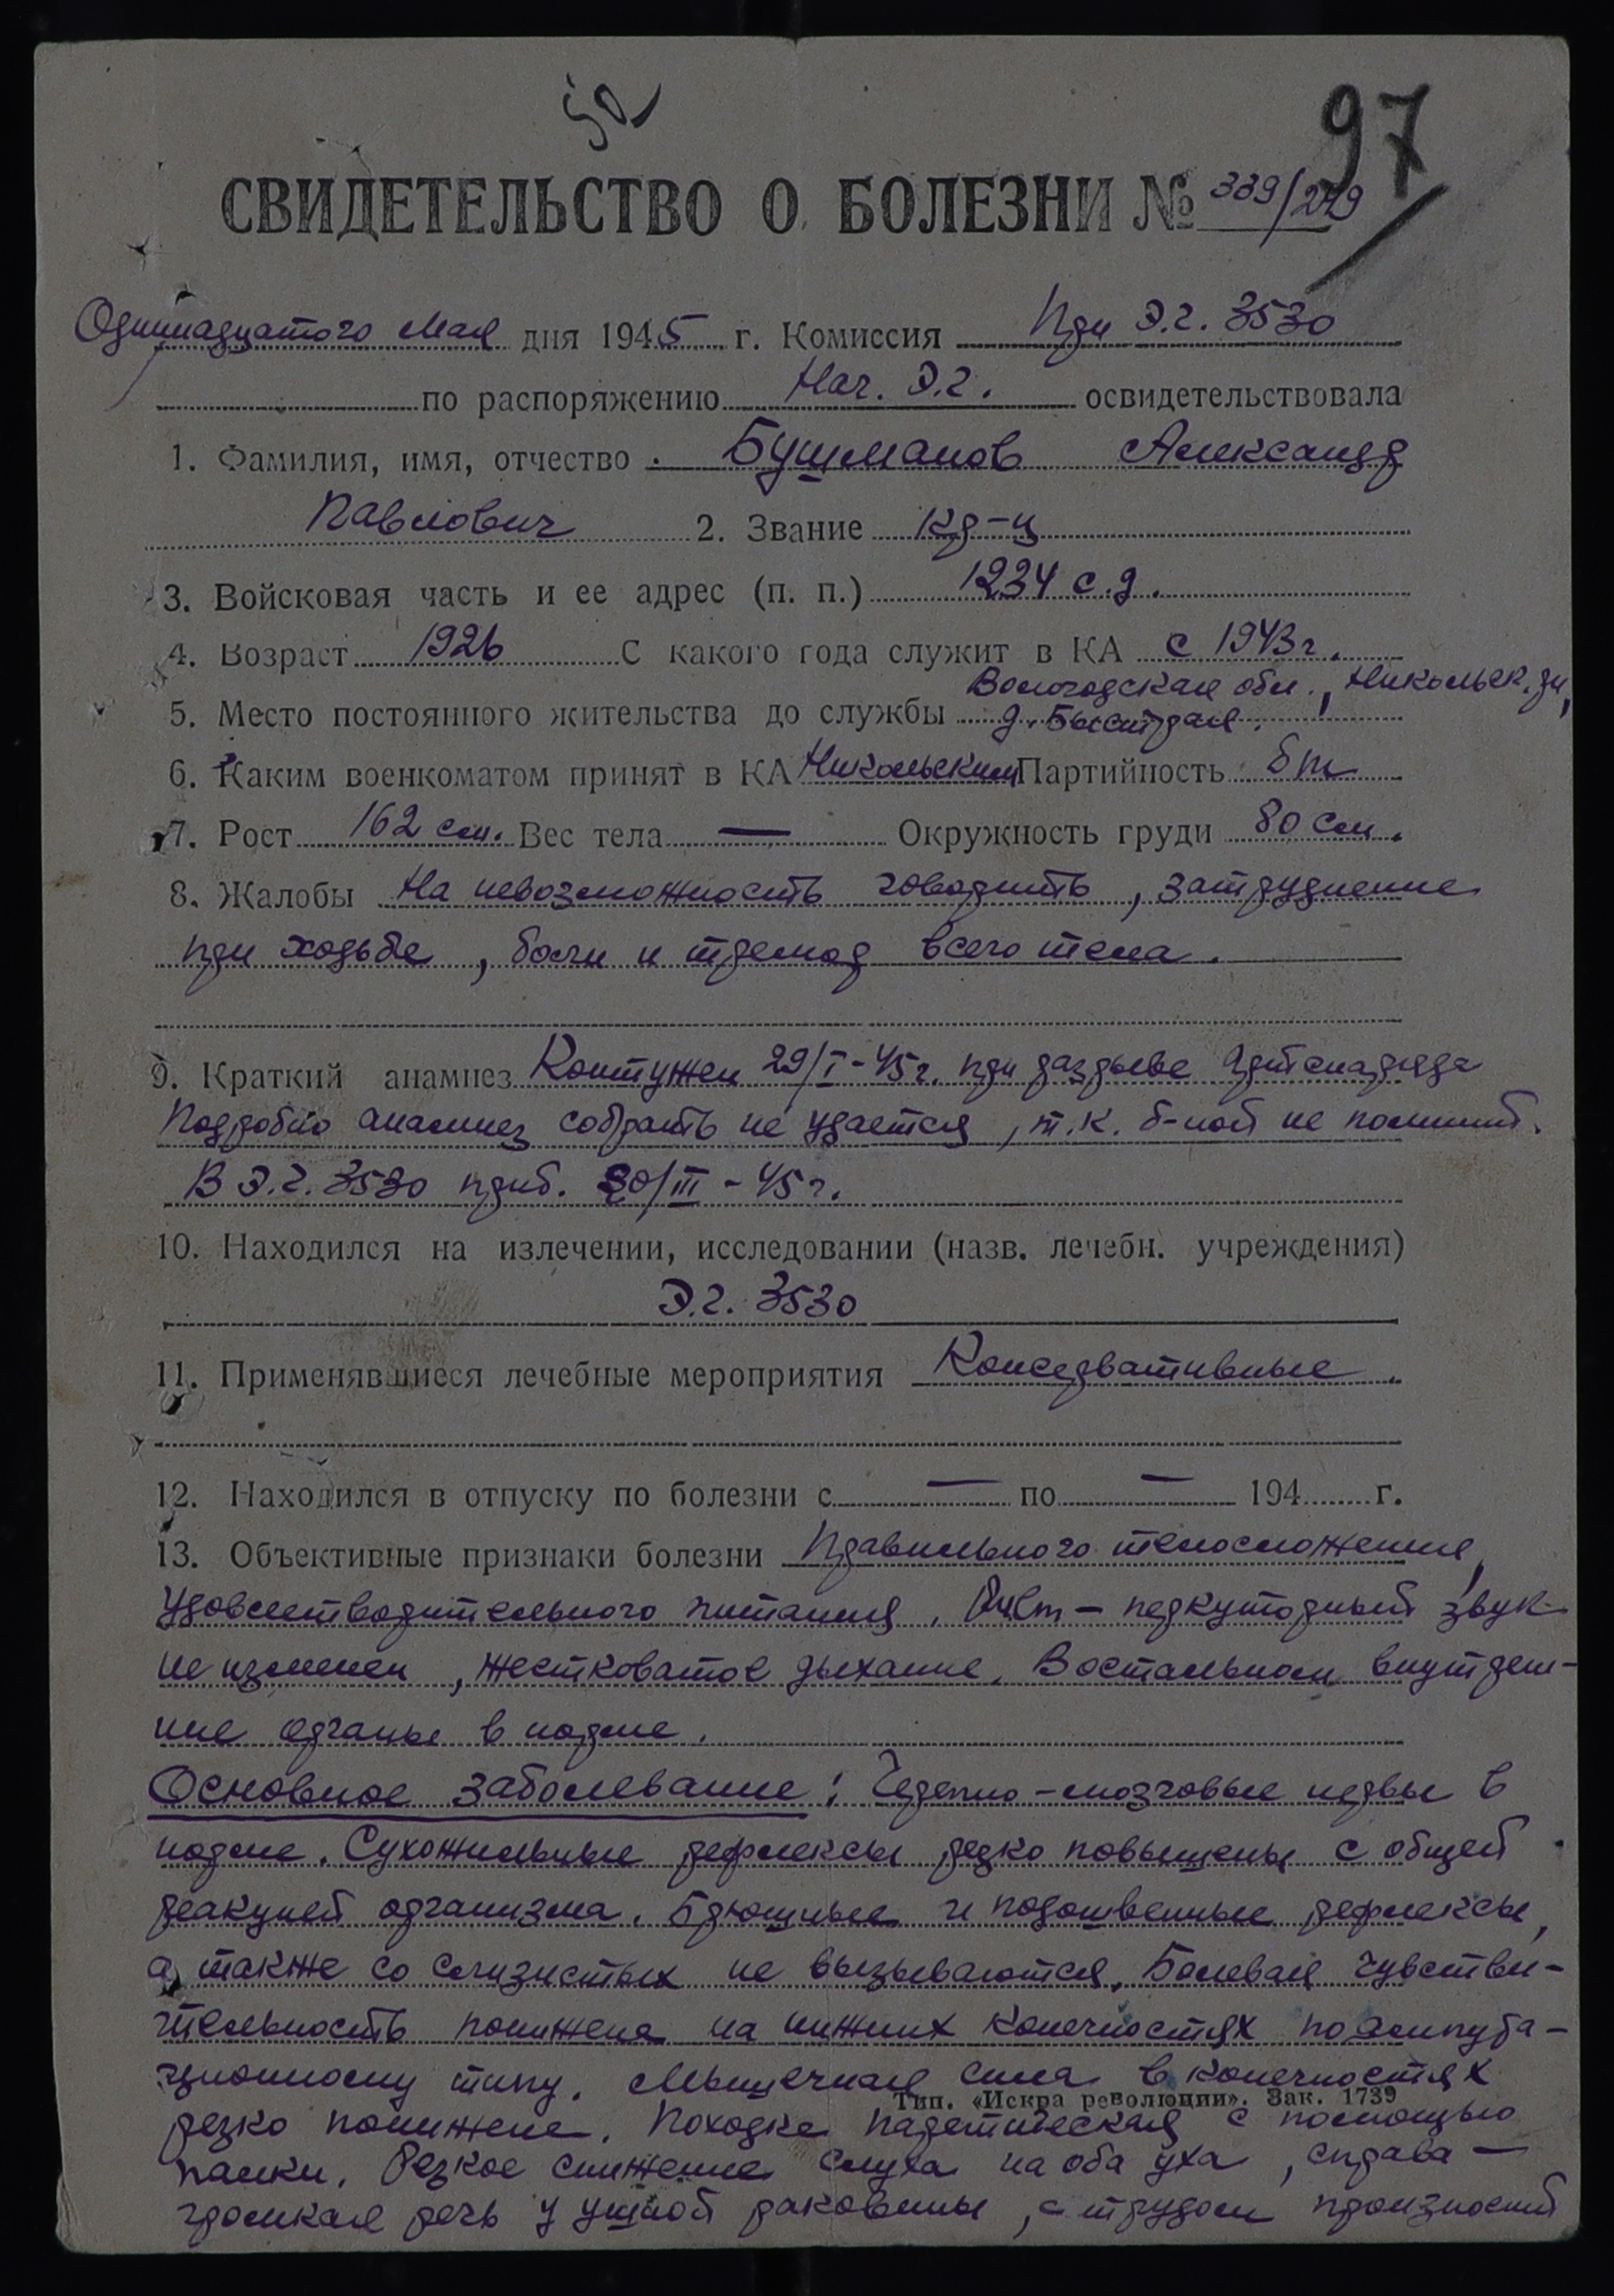 97
СВИДЕТЕЛЬСТВО О БОЛЕЗНИ № 339/249
Одиннадцатого Мая дня 1945 г. Комиссия При Э.г. 3530
по распоряжению Нач. Э.г. освидетельствовала
1. Фамилия, имя, отчество Бушманов Александр
Павлович 2. Звание кр-ц
3. Войсковая часть и ее адрес (п. п.) 1234 с.д.
4. Возраст 1926 С какого года служит в КА с 1943 г.
Вологодская обл., Никольск. рн,
5. Место постоянного жительства до службы д. Быстрая.
6. Каким военкоматом принят в КА Никольским Партийность б/п
7. Рост 162 см. Вес тела — Окружность груди 80 см.
8. Жалобы На невозможность говорить, затруднение
при ходьбе, боли и тремор всего тела.
9. Краткий анамнез Контужен 29/I-45г. при разрыве артснаряда
Подробно анамнез собрать не удается, т.к. б-ной не помнит.
В Э.г. 3530 приб. 30/III-45г.
10. Находился на излечении, исследовании (назв. лечебн. учреждения)
Э.г. 3530
11. Применявшиеся лечебные мероприятия Консервативные.
12. Находился в отпуску по болезни с — по — 194 г.
13. Объективные признаки болезни Правильного телосложения,
удовлетворительного питания. перкуторный звук
не изменен, жестковатое дыхание. В остальном внутрен-
ние органы в норме.
Основное заболевание: Черепно-мозговые нервы в
норме. Сухожильные рефлексы резко повышены с общей
реакцией организма. Брюшные и подошвенные рефлексы,
а также со слизистых не вызываются. Болевая чувстви-
тельность понижена на нижних конечностях по ампута-
ционному типу. Мышечная сила в конечностях
Тип. «Искра революции». Зак. 1739
резко понижена. Походка паретическая с помощью
палки. Резкое снижение слуха на оба уха, справа —
громкая речь у ушной раковины, с трудом произносит